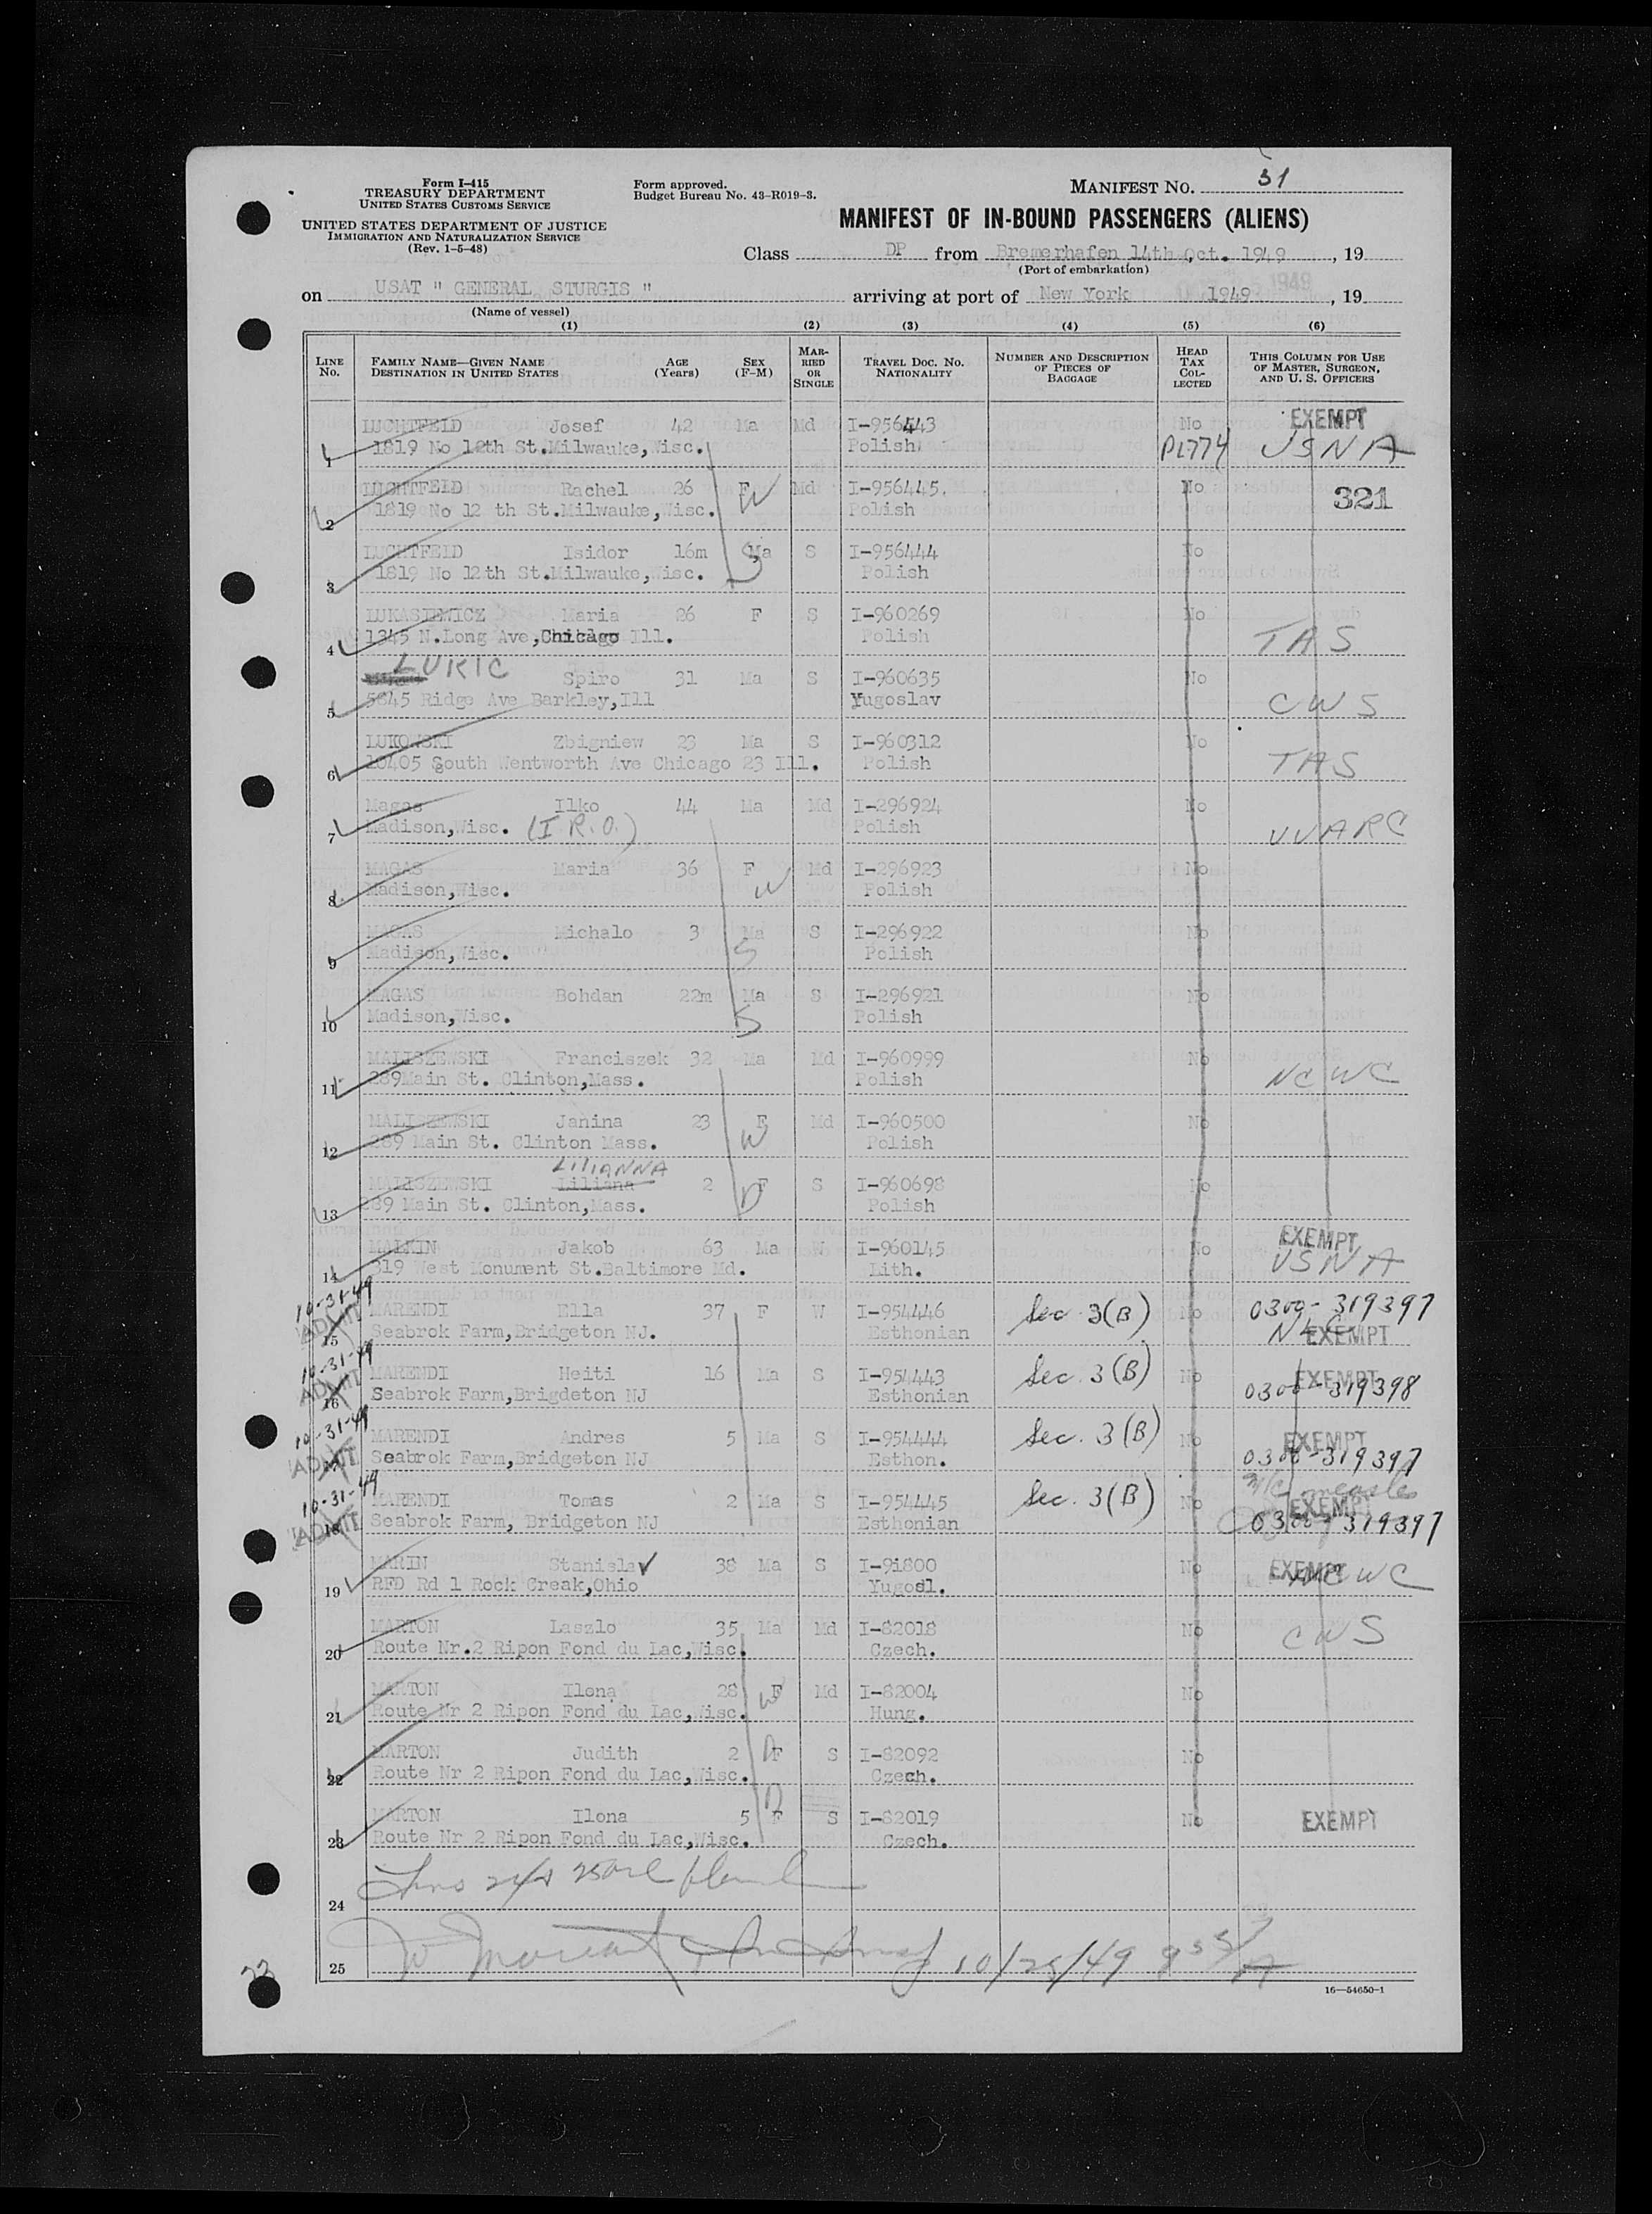 Form I-415
TREASURY DEPARTMENT
UNITED STATES CUSTOMS SERVICE
UNITED STATES DEPARTMENT OF JUSTICE
IMMIGRATION AND NATURALIZATION SERVICE
(Rev. 1-5-48)
Form approved.
Budget Bureau No. 43-R019-3.
MANIFEST NO. 31
MANIFEST OF IN-BOUND PASSENGERS (ALIENS)
Class DP from Bremerhafen 14th Oct. 1949, 19
(Port of embarkation)
on USAT " GENERAL STURGIS " arriving at port of New York 1949, 19
(Name of vessel)
(1) (2) (3) (4) (5) (6)
LINE NO. FAMILY NAME—GIVEN NAME DESTINATION IN UNITED STATES AGE (Years) SEX (F-M) MARRIED OR SINGLE TRAVEL DOC. NO. NATIONALITY NUMBER AND DESCRIPTION OF PIECES OF BAGGAGE HEAD TAX COLLECTED THIS COLUMN FOR USE OF MASTER, SURGEON, AND U. S. OFFICERS
LUCHTFEID Josef 42 Ma Md I-956443 No EXEMPT
1 1819 No 12th St.Milwauke,Wisc. Polish USNA
LUCHTFEID Rachel 26 F W Md I-956445. No 321
2 1819 No 12 th St.Milwauke,Wisc. Polish
LUCHTFEID Isidor 16m Ma S S I-956444 No
3 1819 No 12th St.Milwauke,Wisc. Polish
LUKASIEWICZ Maria 26 F S I-960269 No
4 1345 N.Long Ave,Chicago Ill. Polish TAS
LUKIC Spiro 31 Ma S I-960635 No
5 5645 Ridge Ave Barkley,Ill Yugoslav CWS
LUKOWSKI Zbigniew 23 Ma S I-960312 No
6 10405 South Wentworth Ave Chicago 23 Ill. Polish TAS
Magas Ilko 44 Ma Md I-296924 No
7 Madison,Wisc. (I R.O.) Polish UUARC
MAGAS Maria 36 F W Md I-296923 No
8 Madison,Wisc. Polish
MAGAS Michalo 3 Ma S S I-296922 No
9 Madison,Wisc. Polish
MAGAS Bohdan 22m Ma S S I-296921 No
10 Madison,Wisc. Polish
MALISZEWSKI Franciszek 32 Ma Md I-960999 No
11 289Main St. Clinton,Mass. Polish NCWC
MALISZEWSKI Janina 23 F W Md I-960500 No
12 289 Main St. Clinton Mass. Polish
LILIANNA
MALISZEWSKI Liliana 2 F D S I-960698 No
13 289 Main St. Clinton,Mass. Polish
MALKIN Jakob 63 Ma W I-960145 No EXEMPT
14 319 West Monument St.Baltimore Md. Lith. USNA
10-31-49 MARENDI Ella 37 F W I-954446 Sec 3(B) No 0300-319397
ADMIT 15 Seabrok Farm,Bridgeton NJ. Esthonian EXEMPT
10-31-49 MARENDI Heiti 16 Ma S I-954443 Sec. 3(B) No EXEMPT
ADMIT 16 Seabrok Farm,Brigdeton NJ Esthonian 0300-319398
10-31-49 MARENDI Andres 5 Ma S I-954444 Sec. 3(B) No EXEMPT
ADMIT 17 Seabrok Farm,Bridgeton NJ Esthon. 0300-319397
10-31-49 MARENDI Tomas 2 Ma S I-954445 Sec. 3(B) No measles EXEMPT
ADMIT 18 Seabrok Farm, Bridgeton NJ Esthonian 0300-319397
MARIN Stanislav 38 Ma S I-91800 No EXEMPT
19 RFD Rd 1 Rock Creak,Ohio Yugosl. NCWC
MARTON Laszlo 35 Ma Md I-82018 No
20 Route Nr.2 Ripon Fond du Lac,Wisc. Czech. CWS
MARTON Ilona 28 F W Md I-82004 No
21 Route Nr 2 Ripon Fond du Lac,Wisc. Hung.
MARTON Judith 2 F D S I-82092 No
22 Route Nr 2 Ripon Fond du Lac,Wisc. Czech.
MARTON Ilona 5 F D S I-82019 No EXEMPT
23 Route Nr 2 Ripon Fond du Lac,Wisc. Czech.
24
25 10/25/49
16—54650-1